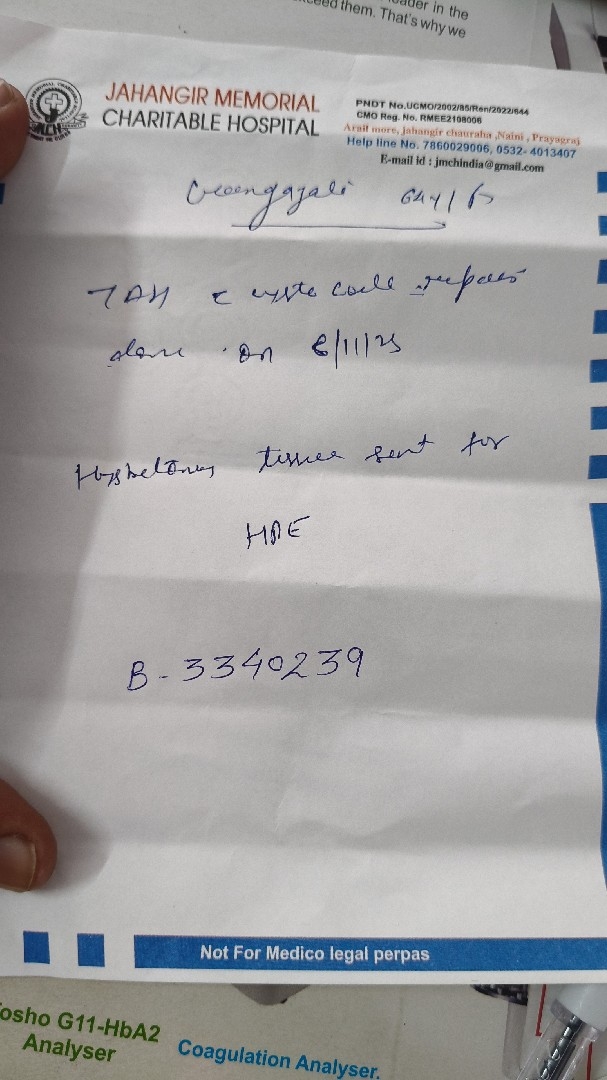 ceed them. That's why we
eader in the
JAHANGIR MEMORIAL
CHARITABLE HOSPITAL
PNDT No.UCMO/2002/85/Ren/2022/644
CMO Reg. No. RMEE2108006
Arail more, jahangir chauraha ,Naini , Prayagraj
Help line No. 7860029006, 0532- 4013407
E-mail id : jmchindia@gmail.com
64y/F
TAH c cystocoele repair
done on 6/11/25
tissue sent for
HPE
B-3340239
Not For Medico legal perpas
osho G11-HbA2
Analyser
Coagulation Analyser.